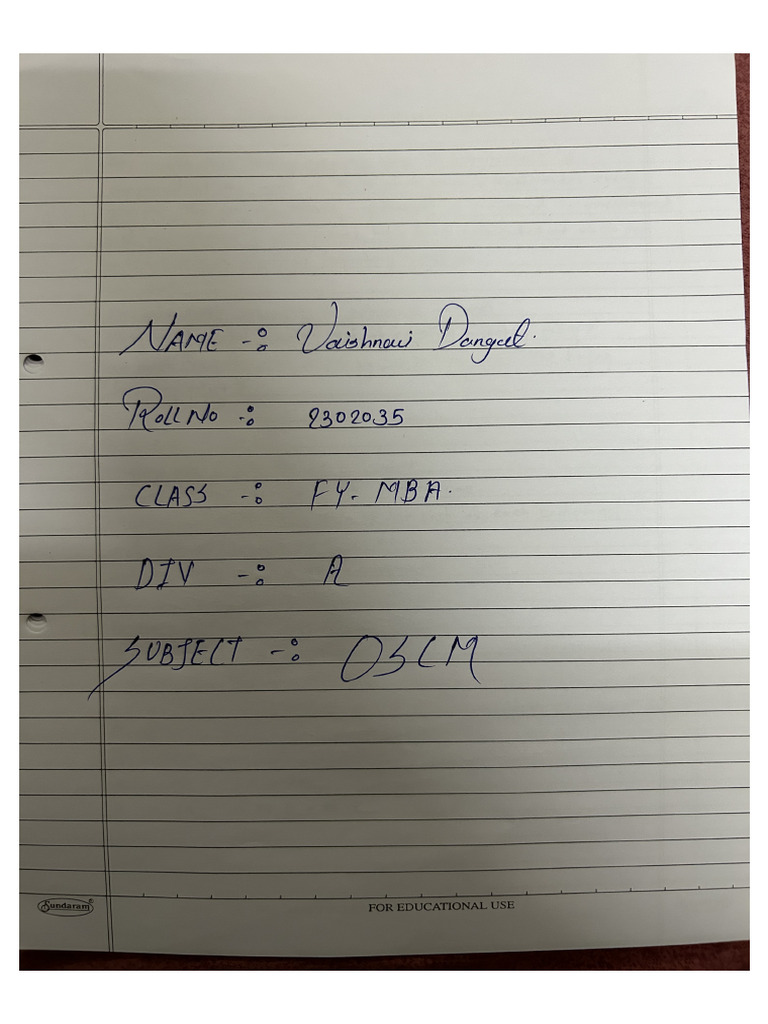 NAME -: Vaishnavi Dangat.
Roll No -: 2302035
CLASS -: FY- MBA.
DIV -: A
SUBJECT -: OSCM
Sundaram®
FOR EDUCATIONAL USE